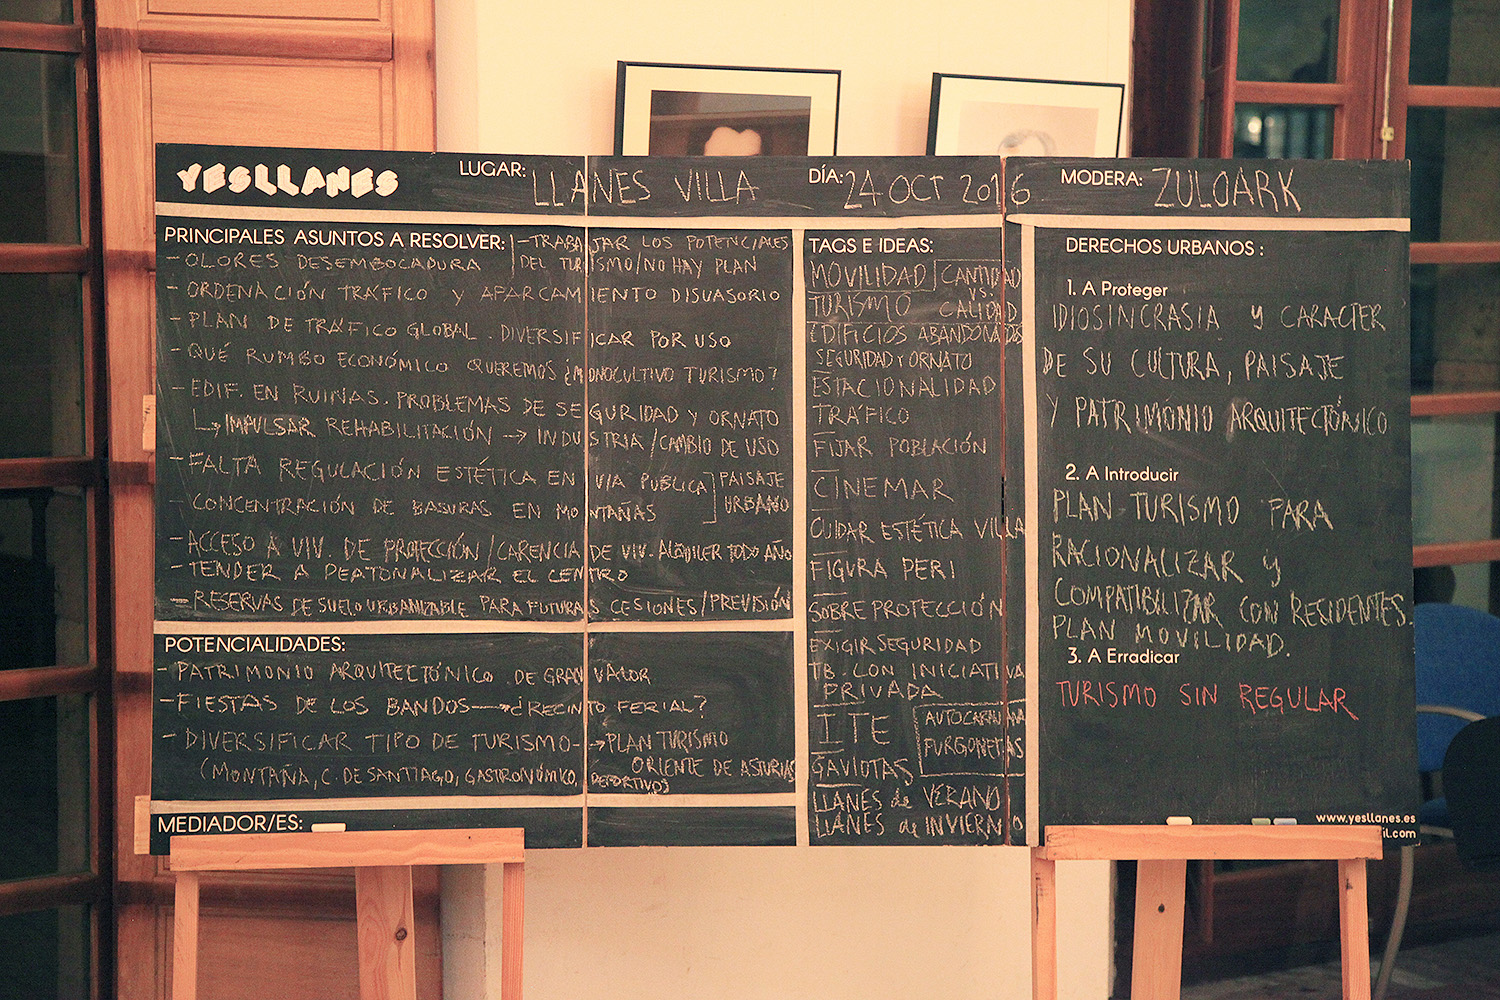 YESLLANES
LUGAR: LLANES VILLA
DÍA: 24 OCT 2016
MODERA: ZULOARK
PRINCIPALES ASUNTOS A RESOLVER:
- OLORES DESEMBOCADURA
- TRABAJAR LOS POTENCIALES
DEL TURISMO/NO HAY PLAN
- ORDENACIÓN TRÁFICO y APARCAMIENTO DISUASORIO
- PLAN DE TRÁFICO GLOBAL. DIVERSIFICAR POR USO
- QUÉ RUMBO ECONÓMICO QUEREMOS ¿MONOCULTIVO TURISMO?
- EDIF. EN RUINAS. PROBLEMAS DE SEGURIDAD Y ORNATO
↳ IMPULSAR REHABILITACIÓN → INDUSTRIA/CAMBIO DE USO
- FALTA REGULACIÓN ESTÉTICA EN VIA PUBLICA
- CONCENTRACIÓN DE BASURAS EN MONTAÑAS
PAISAJE
URBANO
- ACCESO A VIV. DE PROTECCIÓN/CARENCIA DE VIV. ALQUILER TODO AÑO
- TENDER A PEATONALIZAR EL CENTRO
- RESERVAS DE SUELO URBANIZABLE PARA FUTURAS CESIONES/PREVISIÓN
POTENCIALIDADES:
- PATRIMONIO ARQUITECTÓNICO DE GRAN VALOR
- FIESTAS DE LOS BANDOS → ¿RECINTO FERIAL?
- DIVERSIFICAR TIPO DE TURISMO - → PLAN TURISMO
ORIENTE DE ASTURIAS
(MONTAÑA, C. DE SANTIAGO, GASTRONÓMICO, DEPORTIVO)
MEDIADOR/ES:
TAGS E IDEAS:
MOVILIDAD
CANTIDAD
VS.
CALIDAD
TURISMO
EDIFICIOS ABANDONADOS
SEGURIDAD Y ORNATO
ESTACIONALIDAD
TRÁFICO
FIJAR POBLACIÓN
CINEMAR
CUIDAR ESTÉTICA VILLA
FIGURA PERI
SOBRE PROTECCIÓN
EXIGIR SEGURIDAD
TB. CON INICIATIVA
PRIVADA
ITE
AUTOCARAVANA
FURGONETAS
GAVIOTAS
LLANES de VERANO
LLANES de INVIERNO
DERECHOS URBANOS :
1. A Proteger
IDIOSINCRASIA y CARACTER
DE SU CULTURA, PAISAJE
Y PATRIMONIO ARQUITECTÓNICO
2. A Introducir
PLAN TURISMO PARA
RACIONALIZAR y
COMPATIBILIZAR CON RESIDENTES.
PLAN MOVILIDAD.
3. A Erradicar
TURISMO SIN REGULAR
www.yesllanes.es
il.com